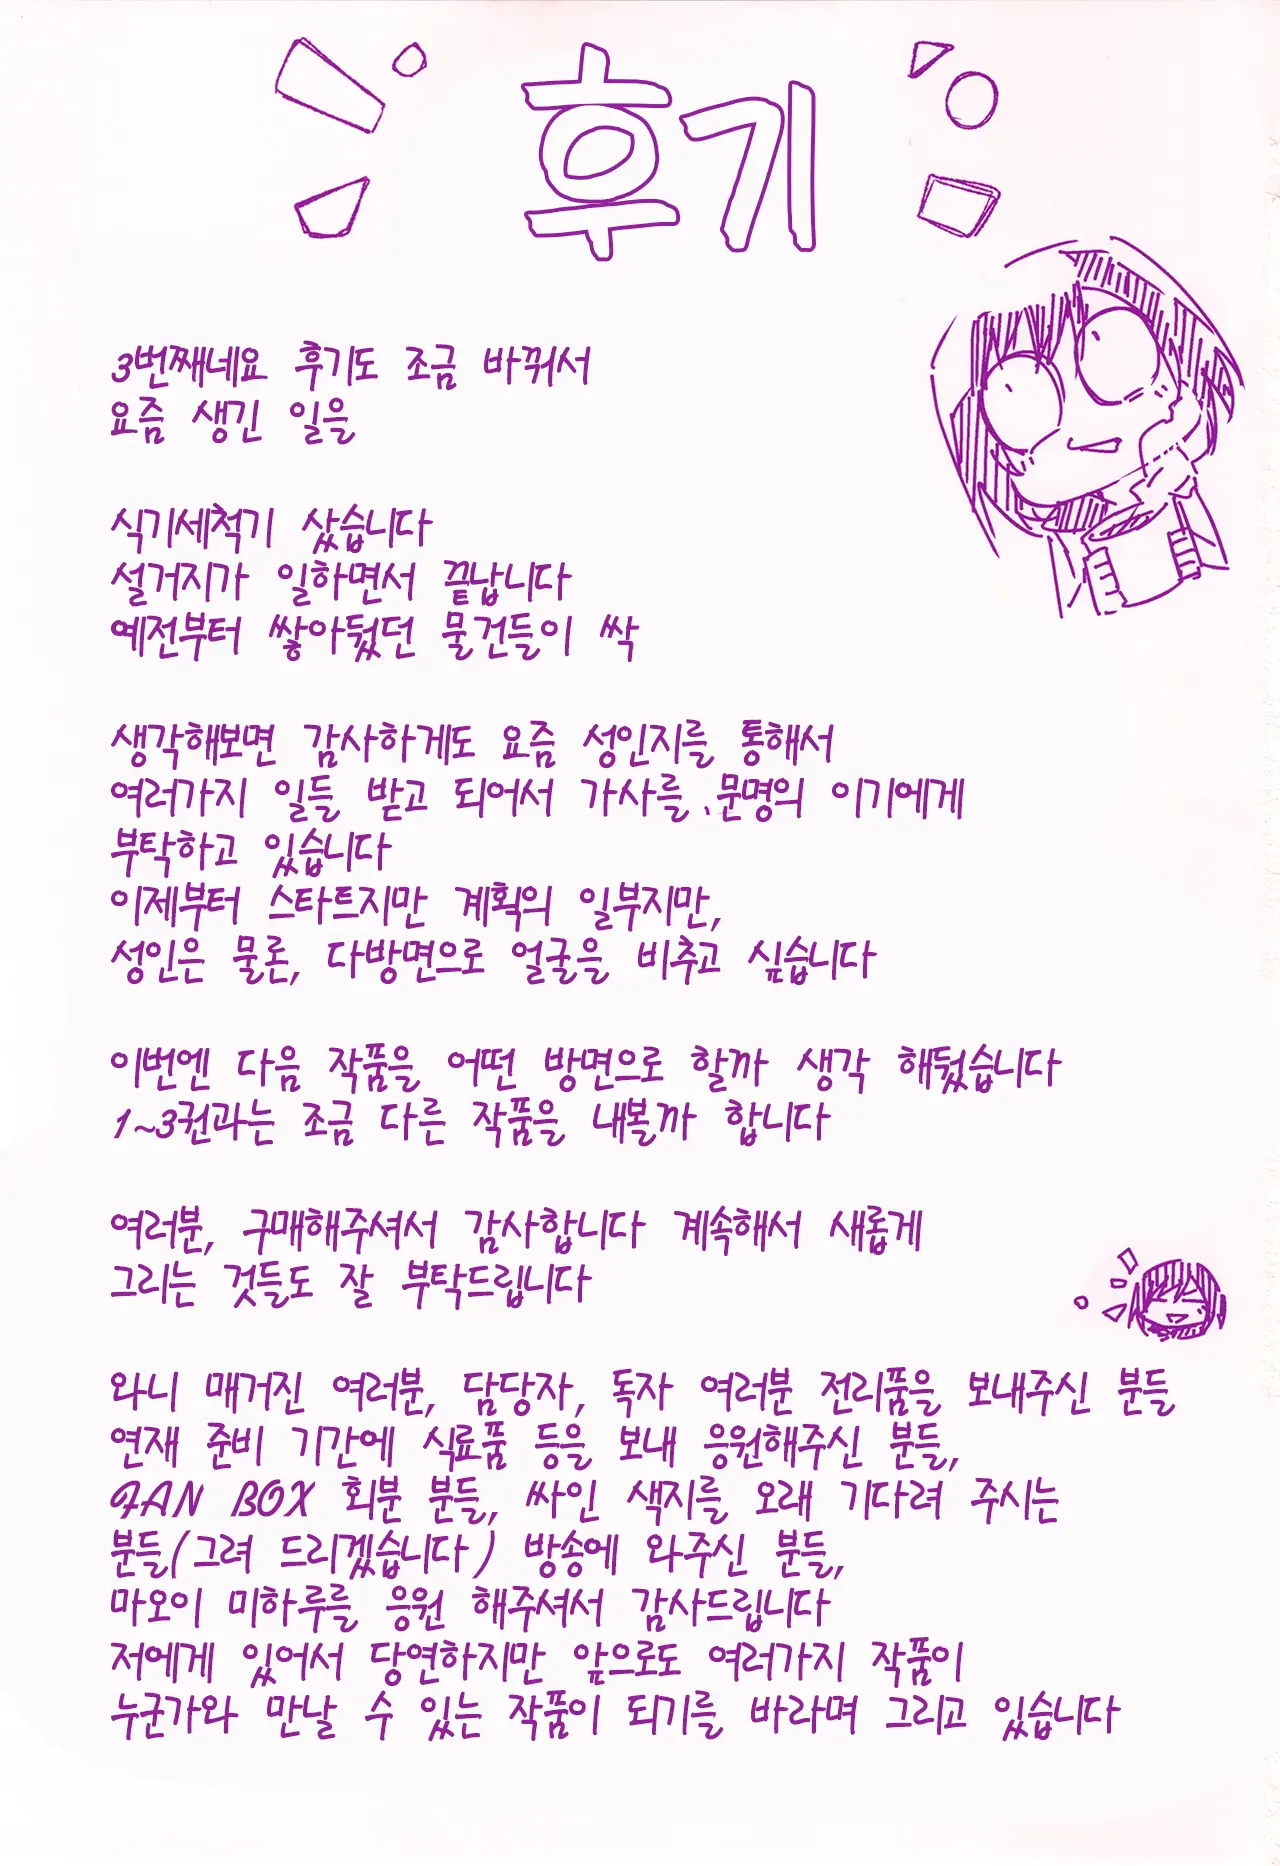 후기
3번째네요 후기도 조금 바꿔서
요즘 생긴 일을
식기세척기 샀습니다
설거지가 일하면서 끝납니다
예전부터 쌓아뒀던 물건들이 싹
생각해보면 감사하게도 요즘 성인지를 통해서
여러가지 일들 받고 되어서 가사를 문명의 이기에게
부탁하고 있습니다
이제부터 스타트지만 계획의 일부지만,
성인은 물론, 다방면으로 얼굴을 비추고 싶습니다
이번엔 다음 작품을 어떤 방면으로 할까 생각 해뒀습니다
1~3권과는 조금 다른 작품을 내볼까 합니다
여러분, 구매해주셔서 감사합니다 계속해서 새롭게
그리는 것들도 잘 부탁드립니다
와니 매거진 여러분, 담당자, 독자 여러분 전리품을 보내주신 분들
연재 준비 기간에 식료품 등을 보내 응원해주신 분들,
FAN BOX 회분 분들, 싸인 색지를 오래 기다려 주시는
분들(그려 드리겠습니다) 방송에 와주신 분들,
마오이 미하루를 응원 해주셔서 감사드립니다
저에게 있어서 당연하지만 앞으로도 여러가지 작품이
누군가와 만날 수 있는 작품이 되기를 바라며 그리고 있습니다